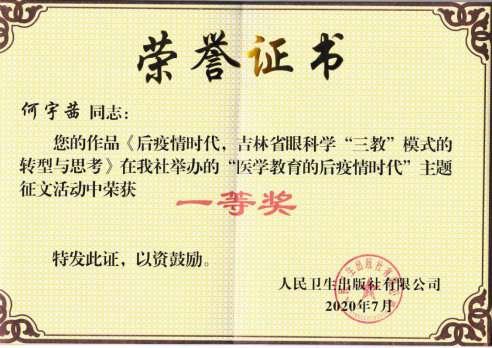 荣誉证书
何宇茜 同志：
您的作品《后疫情时代，吉林省眼科学“三教”模式的
转型与思考》在我社举办的“医学教育的后疫情时代”主题
征文活动中荣获
一等奖
特发此证，以资鼓励。
人民卫生出版社有限公司
2020年7月